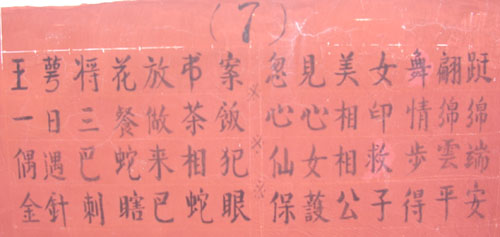 (7)
王萼将花放书案
一日三餐做茶飯
偶遇巴蛇来相犯
金針刺瞎巴蛇眼
忽見美女舞翩跹
心心相印情綿綿
仙女相救步雲端
保護公子得平安